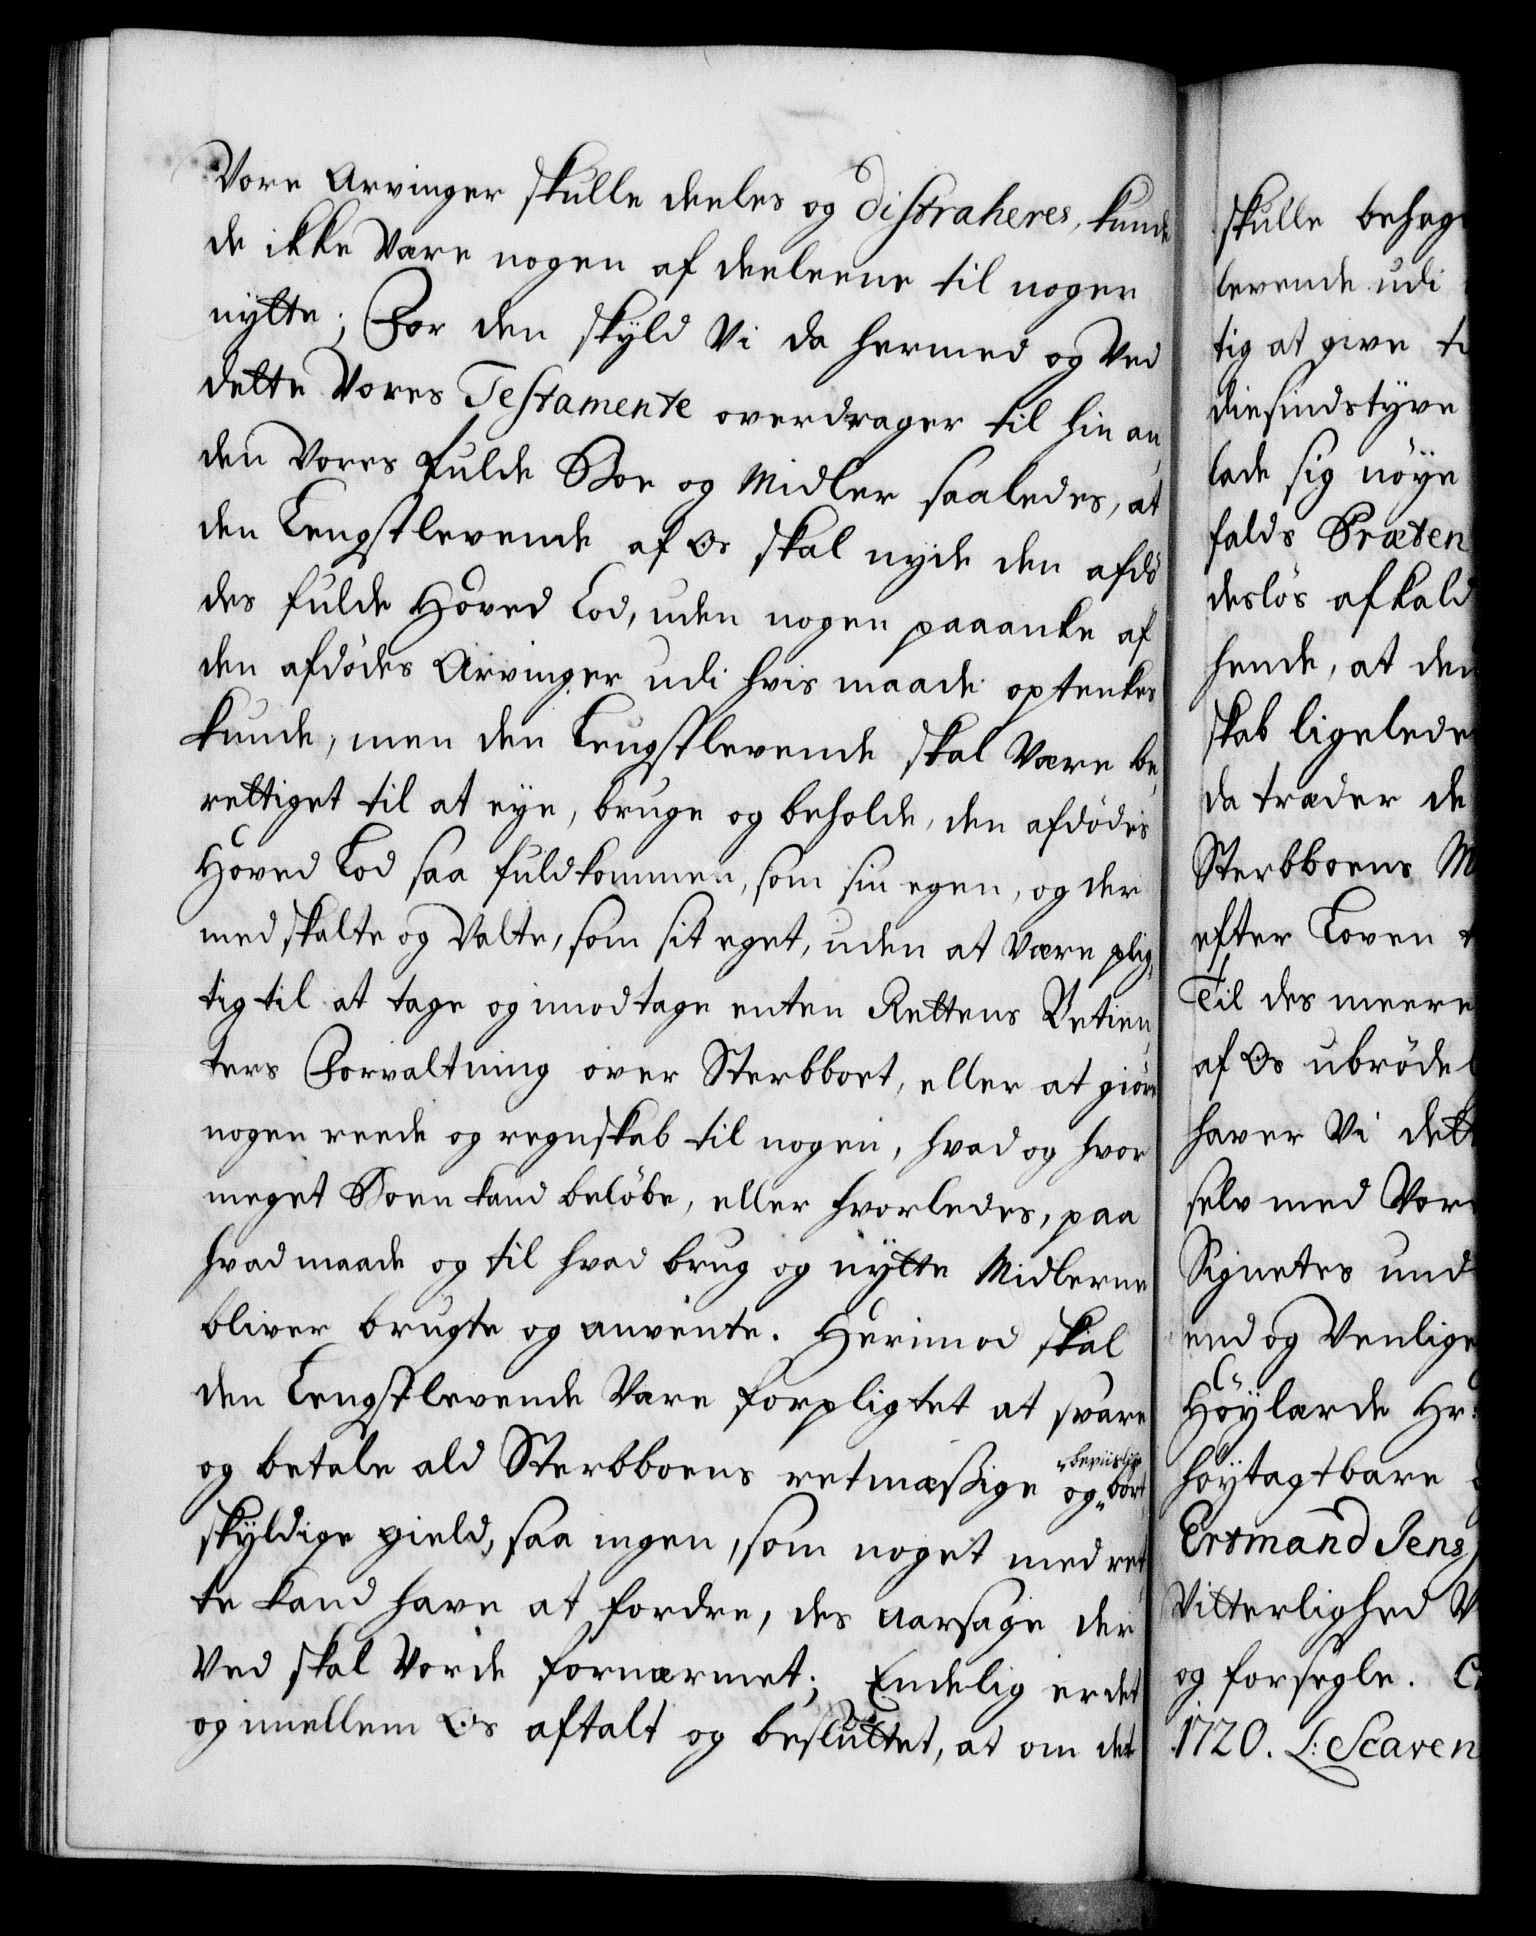 Vore Arvinger skulle deeles og distraheres, kun¬
de ikke være nogen af deeleene til nogen
nytte; For den skyld Vi da hermed og Ved
dette Vores Testamente overdrager til hin an¬
den Vores fulde Boe og Midler saaledes, at
den Lengstlevende af Os skal nyde den afdö¬
des fulde Hoved Lod, uden nogen paaanke af
den afdödes Arvinger udi hvis maade optenkes
kunde, men den Lengstlevende skal Være be¬
rettiget til at eye, bruge og beholde, den afdödes
Hoved Lod saa fuldkommen, som sin egen, og der
med skalte og Valte, som sit eget, uden at Være plig¬
tig til at tage og imodtage enten Rettens Betien¬
ters Forvaltning over Sterbboet, eller at giöre
nogen reede og regnskab til nogen, hvad og hvor
meget Boen kand belöbe, eller hvorledes, paa
hvad maade og til hvad brug og nytte Midlerne
bliver brugte og anvente. Herimod skal
den Lengstlevende Være forpligtet at svare
og betale ald Sterbboens retmæssige og beviislige bort
skyldige gield, saa ingen, som noget med ret¬
te kand have at fordre, des aarsage der
Ved skal Vorde fornærmet; Endelig er det
og imellem Os aftalt og besluttet, at om det
skulle behag
levende udi
tig at give
diesindstyve
lade sig nöye
falds Præten
deslös afkald
hende, at den
skab ligelede
da træder de
Sterbboens M
efter Loven
Til des meere
af Os ubröde
haver Vi dett
selv med Vor
Signetes und
end og Venlige
Höylærde Hr:
höytagtbare
Ertmand Jens
Vitterlighed V
og forsegle. C
1720. L: Scaven